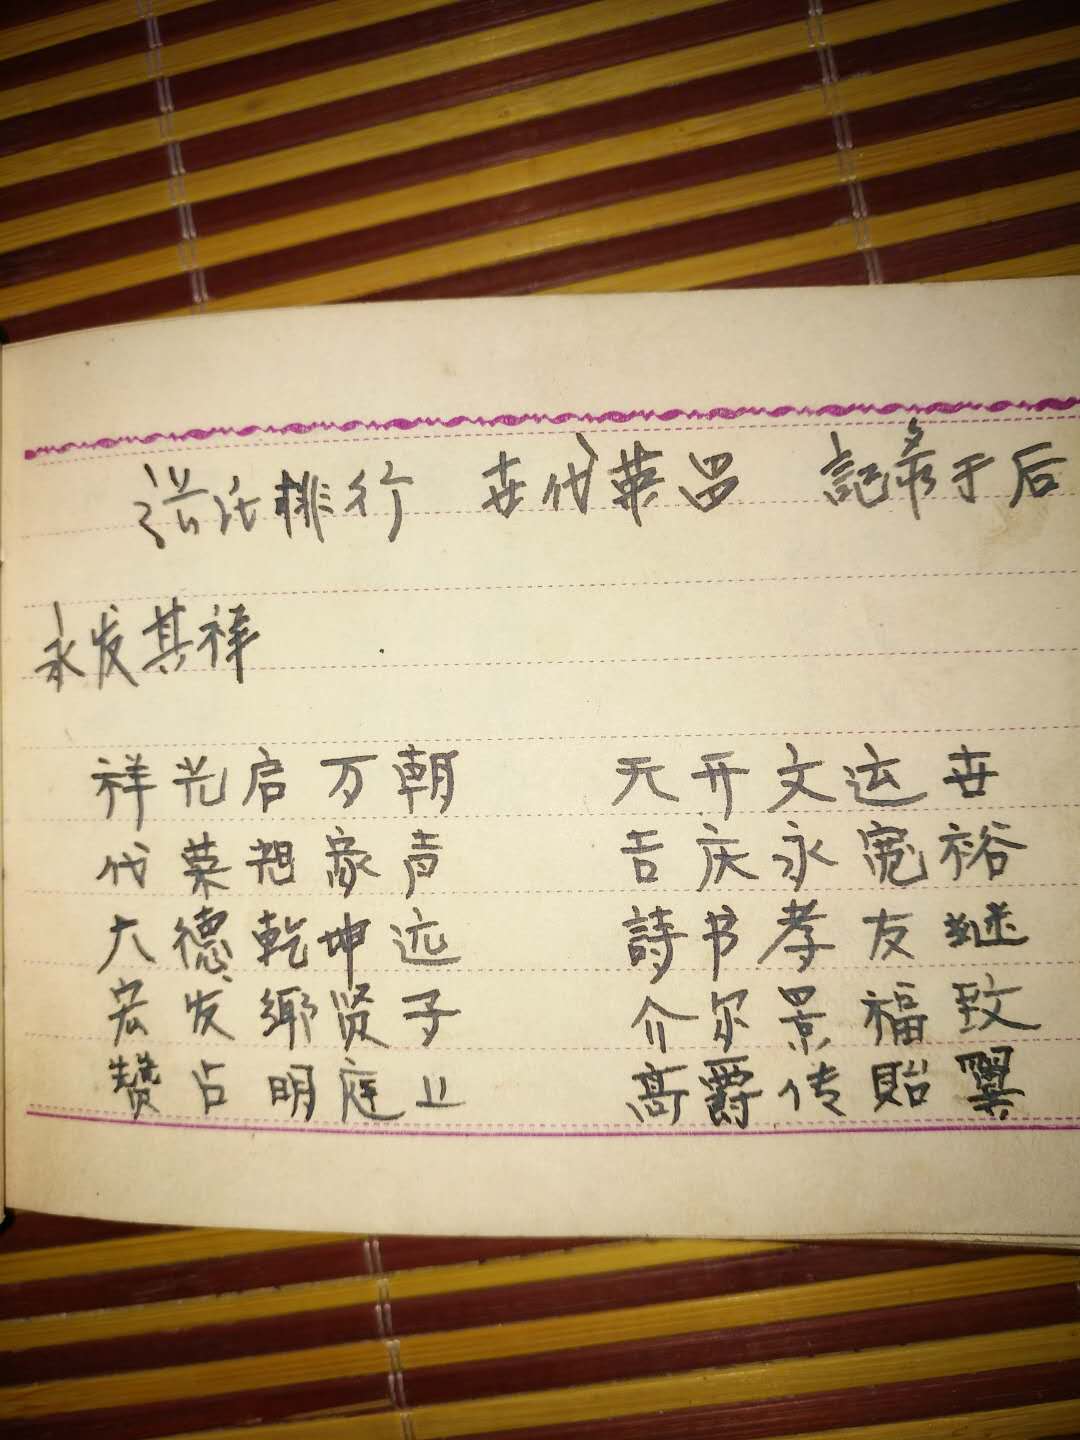 洪氏排行 世代荣昌 記录于后
永发其祥
祥光启万朝 天开文运世
代荣旭家声 吉庆永宽裕
大德乾坤远 詩书孝友继
宏发乡贤子 介尔景福致
赞占明庭上 高爵传貽翼